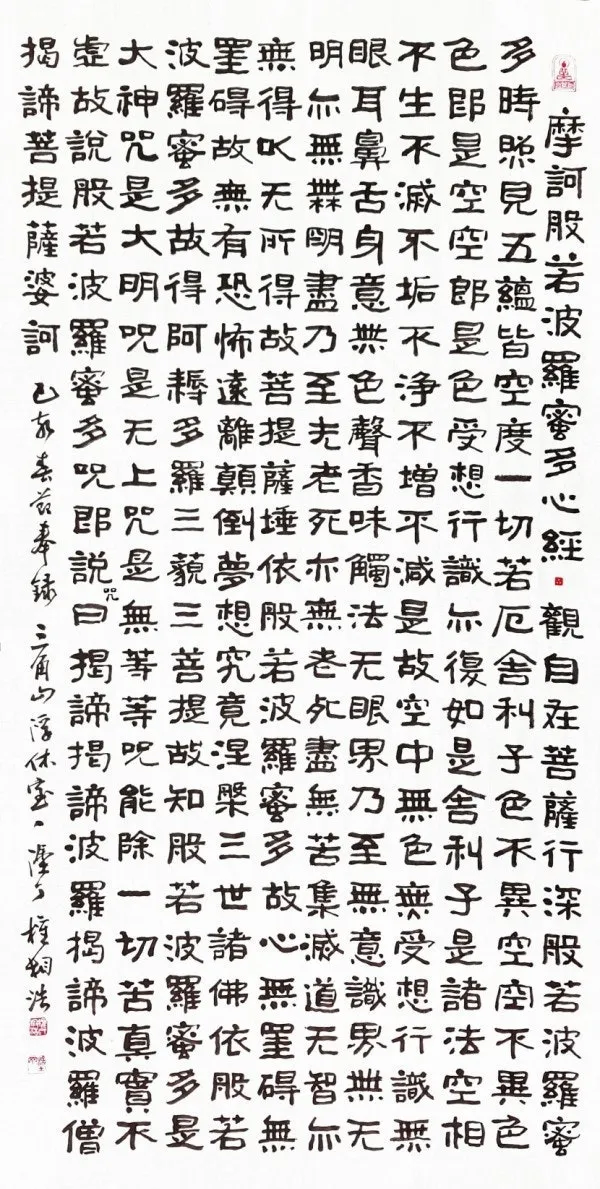 摩訶般若波羅蜜多心經 觀自在菩薩行深般若波羅蜜
多時照見五蘊皆空度一切苦厄舍利子色不異空空不異色
色即是空空即是色受想行識亦復如是舍利子是諸法空相
不生不滅不垢不淨不增不減是故空中無色無受想行識無
眼耳鼻舌身意無色聲香味觸法无眼界乃至無意識界無无
明亦無無明盡乃至无老死亦無老死盡無苦集滅道无智亦
無得以无所得故菩提薩埵依般若波羅蜜多故心無罣碍無
罣碍故無有恐怖遠離顛倒夢想究竟涅槃三世諸佛依般若
波羅蜜多故得阿耨多羅三藐三菩提故知般若波羅蜜多是
大神咒是大明咒是无上咒是無等等咒能除一切苦真實不
虛故說般若波羅蜜多咒即說咒曰揭諦揭諦波羅揭諦波羅僧
揭諦菩提薩婆訶 己亥春節奉錄 三角山浮休室 權相浩